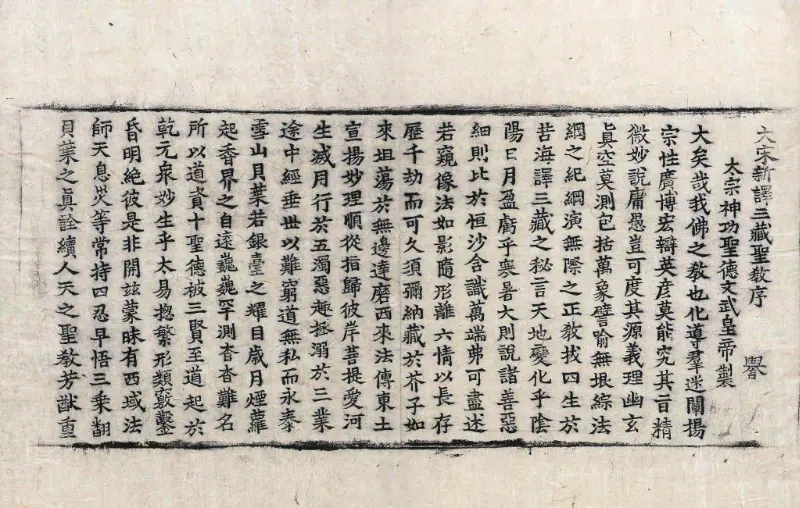 大宋新譯三藏聖敎序 譽
太宗神功聖德文武皇帝製
大矣哉我佛之敎也化導羣迷闡揚
宗性廣博宏辯英彥莫能究其旨精
微妙說庸愚豈可度其源義理幽玄
眞空莫測包括萬象譬喻無垠綜法
網之紀綱演無際之正敎拔四生於
苦海譯三藏之秘言天地變化乎陰
陽日月盈虧乎寒暑大則說諸善惡
細則比於恒沙含識萬端弗可盡述
若窺像法如影隨形離六情以長存
歷千劫而可久須彌納藏於芥子如
來坦蕩於無邊達磨西來法傳東土
宣揚妙理順從指歸彼岸菩提愛河
生滅用行於五濁惡趣拯溺於三業
途中經垂世以難窮道無私而永泰
雪山貝葉若銀臺之耀目歲月煙蘿
起香界之自遠巍巍罕測杳杳難名
所以道資十聖德被三賢至道起於
乾元衆妙生乎太易揔繁形類竅鑿
昏明絕彼是非開茲蒙昧有西域法
師天息災等常持四忍早悟三乘翻
貝葉之眞詮續人天之聖敎芳猷重